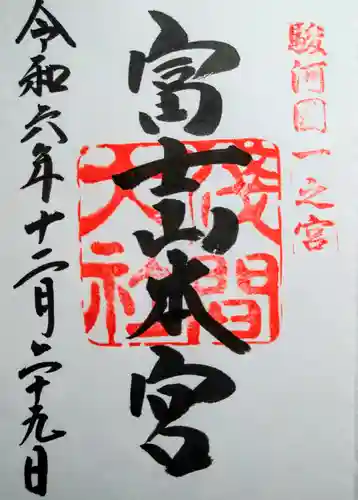 駿河國一之宮
富士山本宮
淺間大社
令和六年十二月二十九日